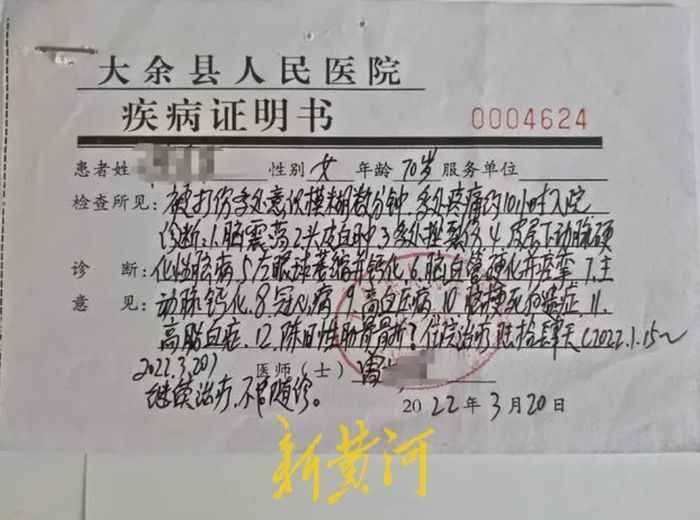 大余县人民医院
疾病证明书
0004624
患者姓 性别 女 年龄 70岁 服务单位
检查所见: 被打伤多处意识模糊数分钟,多处疼痛约10小时入院
诊断:1.脑震荡 2.头皮血肿 3.多处挫裂伤 4.皮层下动脉硬
诊 断: 化性脑病 5.左眼球萎缩并钙化 6.脑血管硬化并痉挛 7.主
意 见: 动脉钙化 8.冠心病 9.高血压病 10.腔梗 症 11.
高脂血症 12.陈旧性肋骨骨折? 住院治疗 陆拾肆天(2022.1.15~
2022.3.20) 医师(士)
继续治疗,不 随诊。
2022年3月20日
新黄河